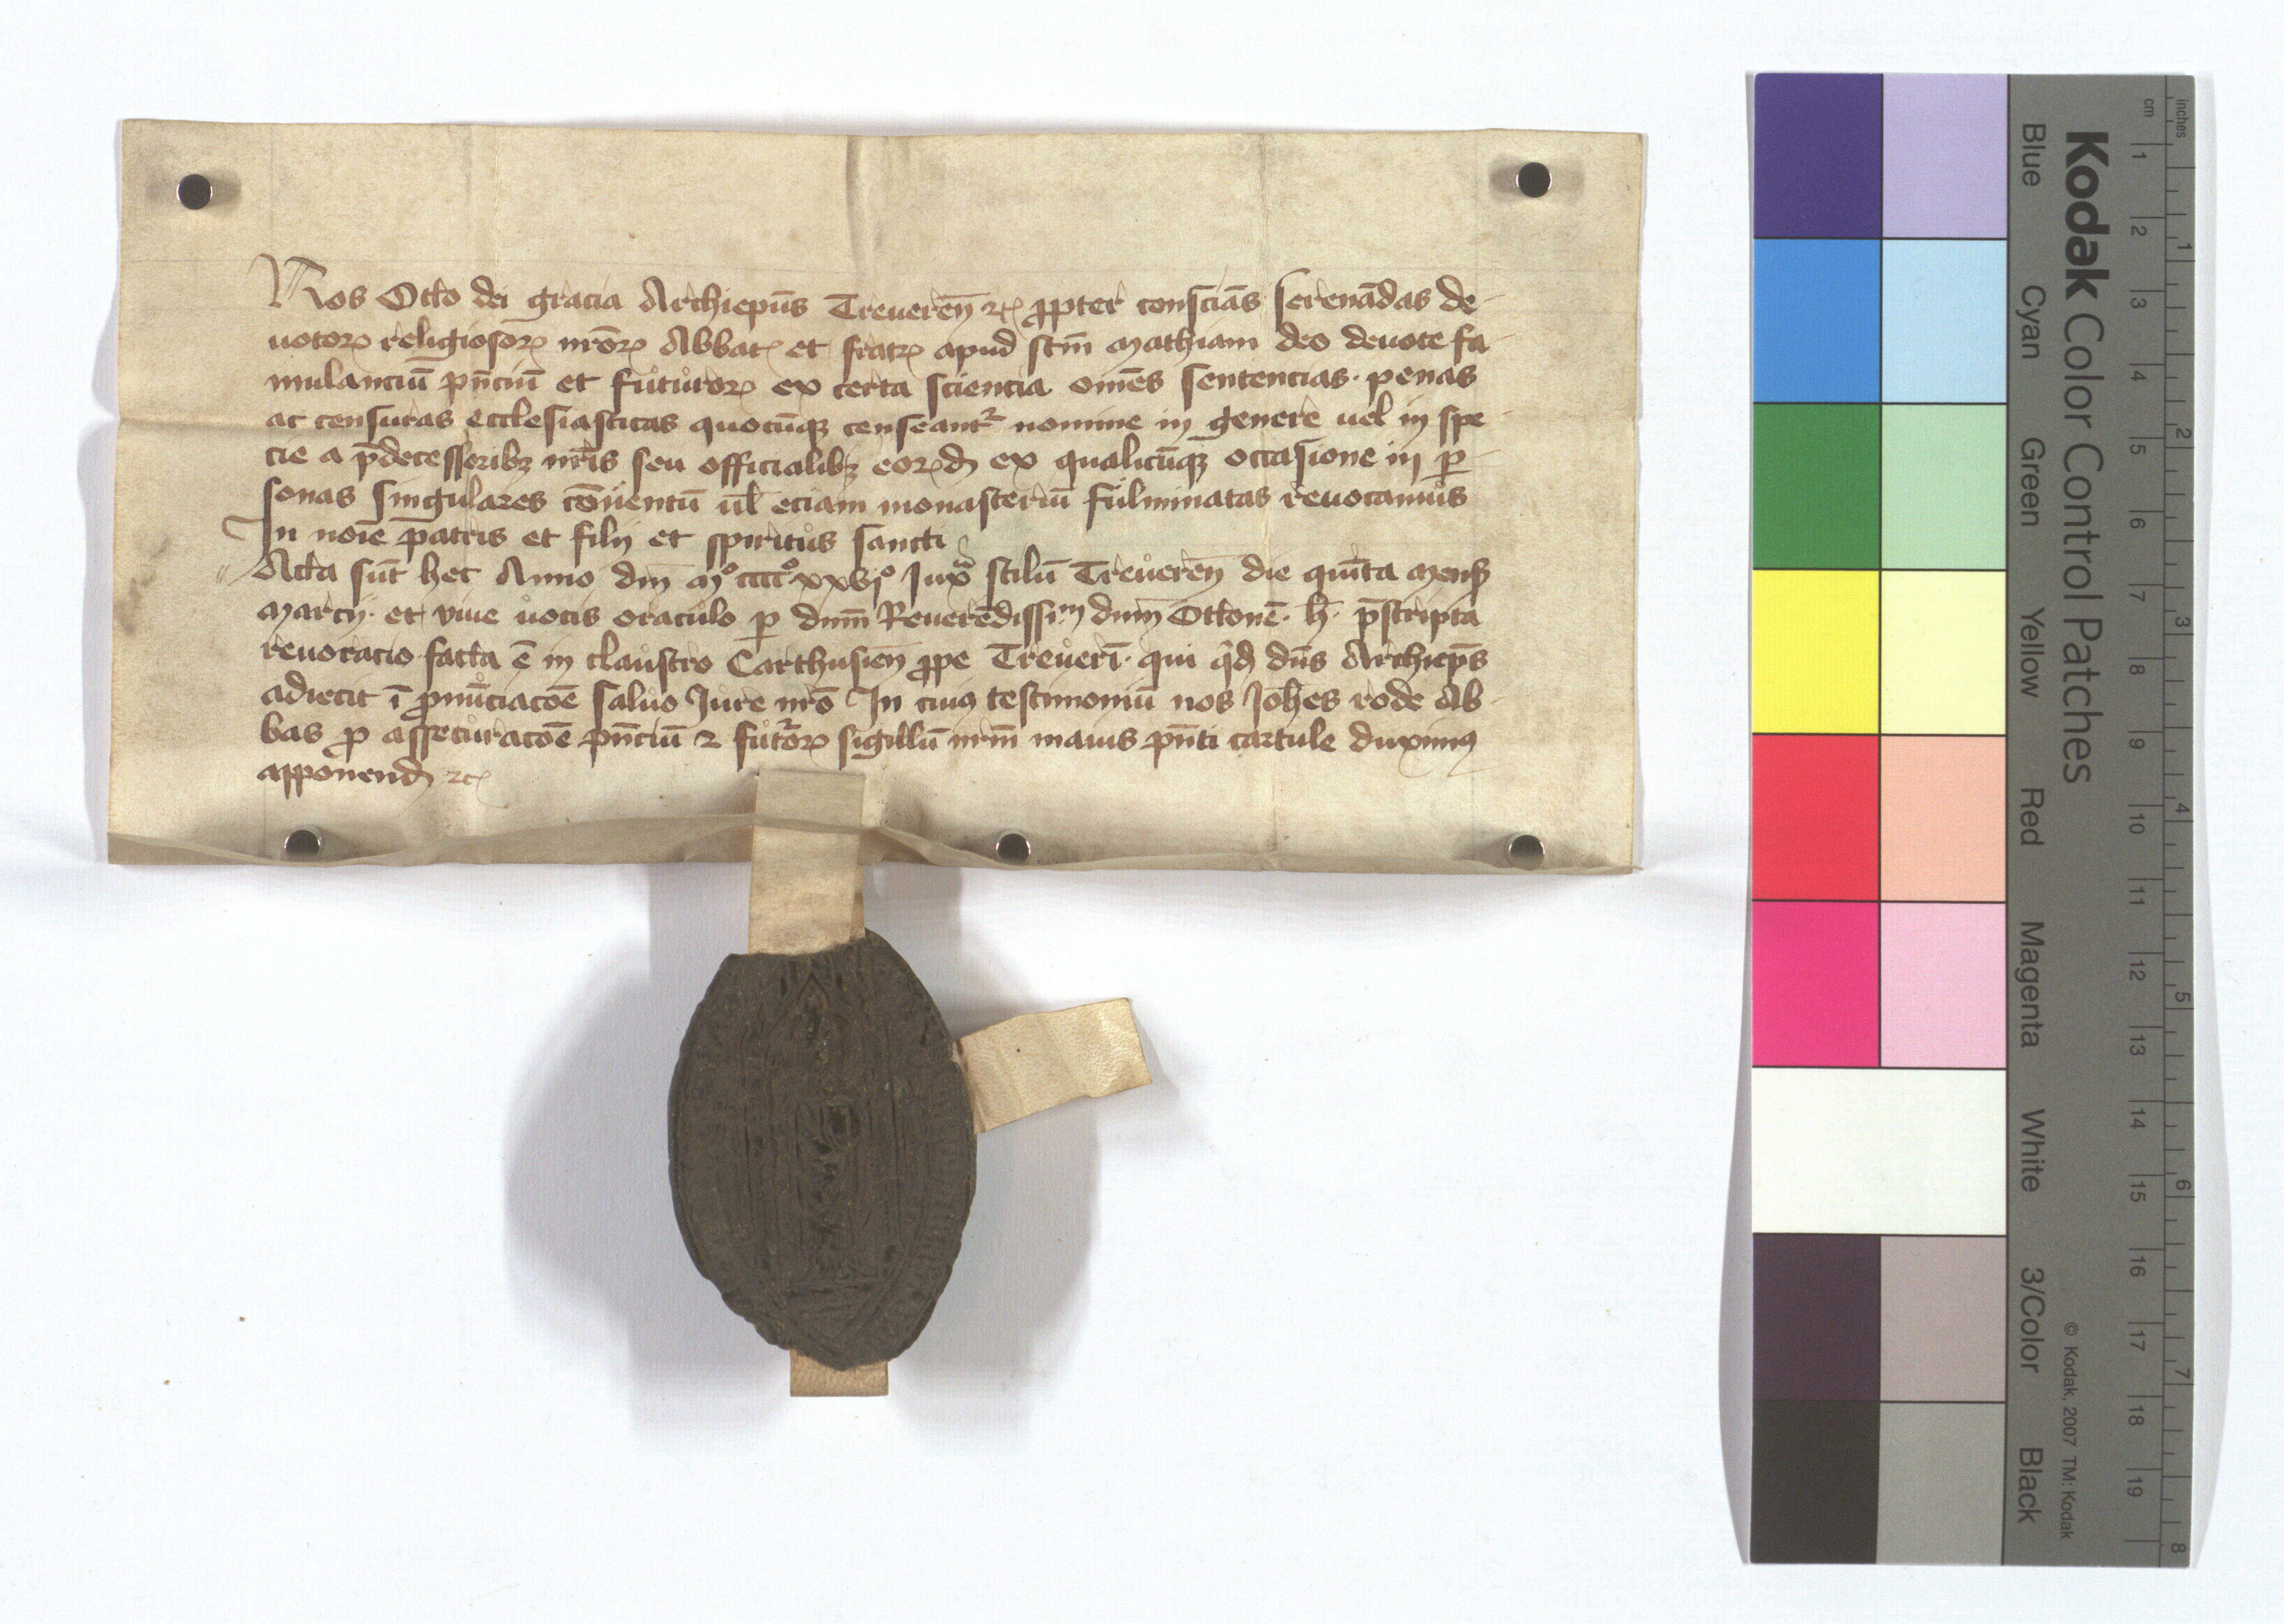 Nos Otto dei gracia Archiepūs Treuereñ ꝛc̄ ꝓpter consciās serenādas de-
uotoꝝ religiosoꝝ nr̄oꝝ Abbatꝭ et fratꝝ apud sctm̄ mathiam deo deuote fa-
mulanciū pn̄ciū et futuroꝝ ex certa sciencia om̄es sentencias · penas
ac censuras ecclesiasticas quocūqꝫ censeantᷣ nomine in genere uel in spe-
cie a p̄decessoribꝫ nr̄is seu officialibꝫ eoꝝd̄ ex qualicūqꝫ occasione in ꝑ-
sonas singulares cōuentū ul̄ eciam monasteriū fulminatas reuocamus
In noīe patris et filij et spiritus sancti
Acta sūt hec Anno dn̄i mͦ ccccͦ xxvjͦ Juxͣ stilū Treuereñ die quīta mensꝭ
marcij · et viue uocis oraculo ꝑ dn̄m Reuerēdissim dn̄m Ottonē · h̄ · p̄scripta
reuocacio facta ē in claustro Carthusieñ ꝓpe Treuerī · qui qͥd̄ dn̄s Archiep̄s
adiecit ī ꝓnūciacōe saluo Jure nr̄o In cuiꝰ testimoniū nos Joh̄es rode Ab-
bas ꝓ assecuracōe pn̄ciū ⁊ futᷣoꝝ sigillū nr̄m maius pn̄ti cartule duximꝰ
apponend̄ ꝛc̄
Kodak Color Control Patches
Blue Cyan Green Yellow Red Magenta White 3/Color Black
© Kodak, 2007 TM: Kodak
cm 1 2 3 4 5 6 7 8 9 10 11 12 13 14 15 16 17 18 19
inches 1 2 3 4 5 6 7 8